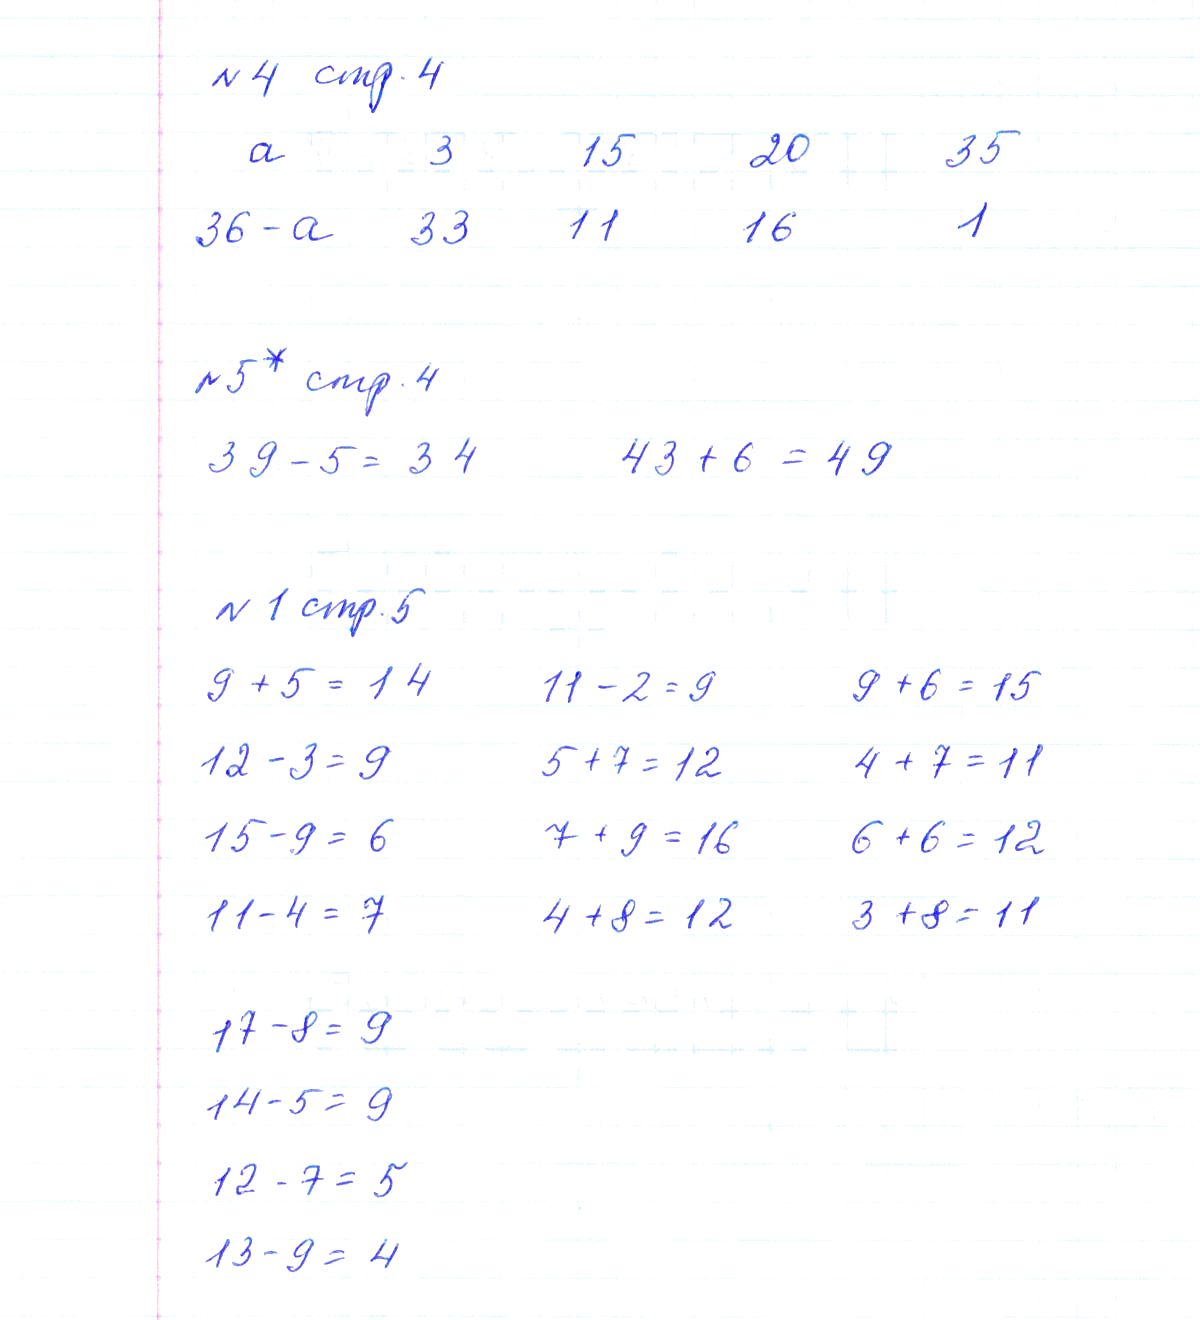 №4 стр. 4
а 3 15 20 35
36-а 33 11 16 1
№5* стр. 4
39-5=34 43+6=49
№1 стр. 5
9+5=14 11-2=9 9+6=15
12-3=9 5+7=12 4+7=11
15-9=6 7+9=16 6+6=12
11-4=7 4+8=12 3+8=11
17-8=9
14-5=9
12-7=5
13-9=4